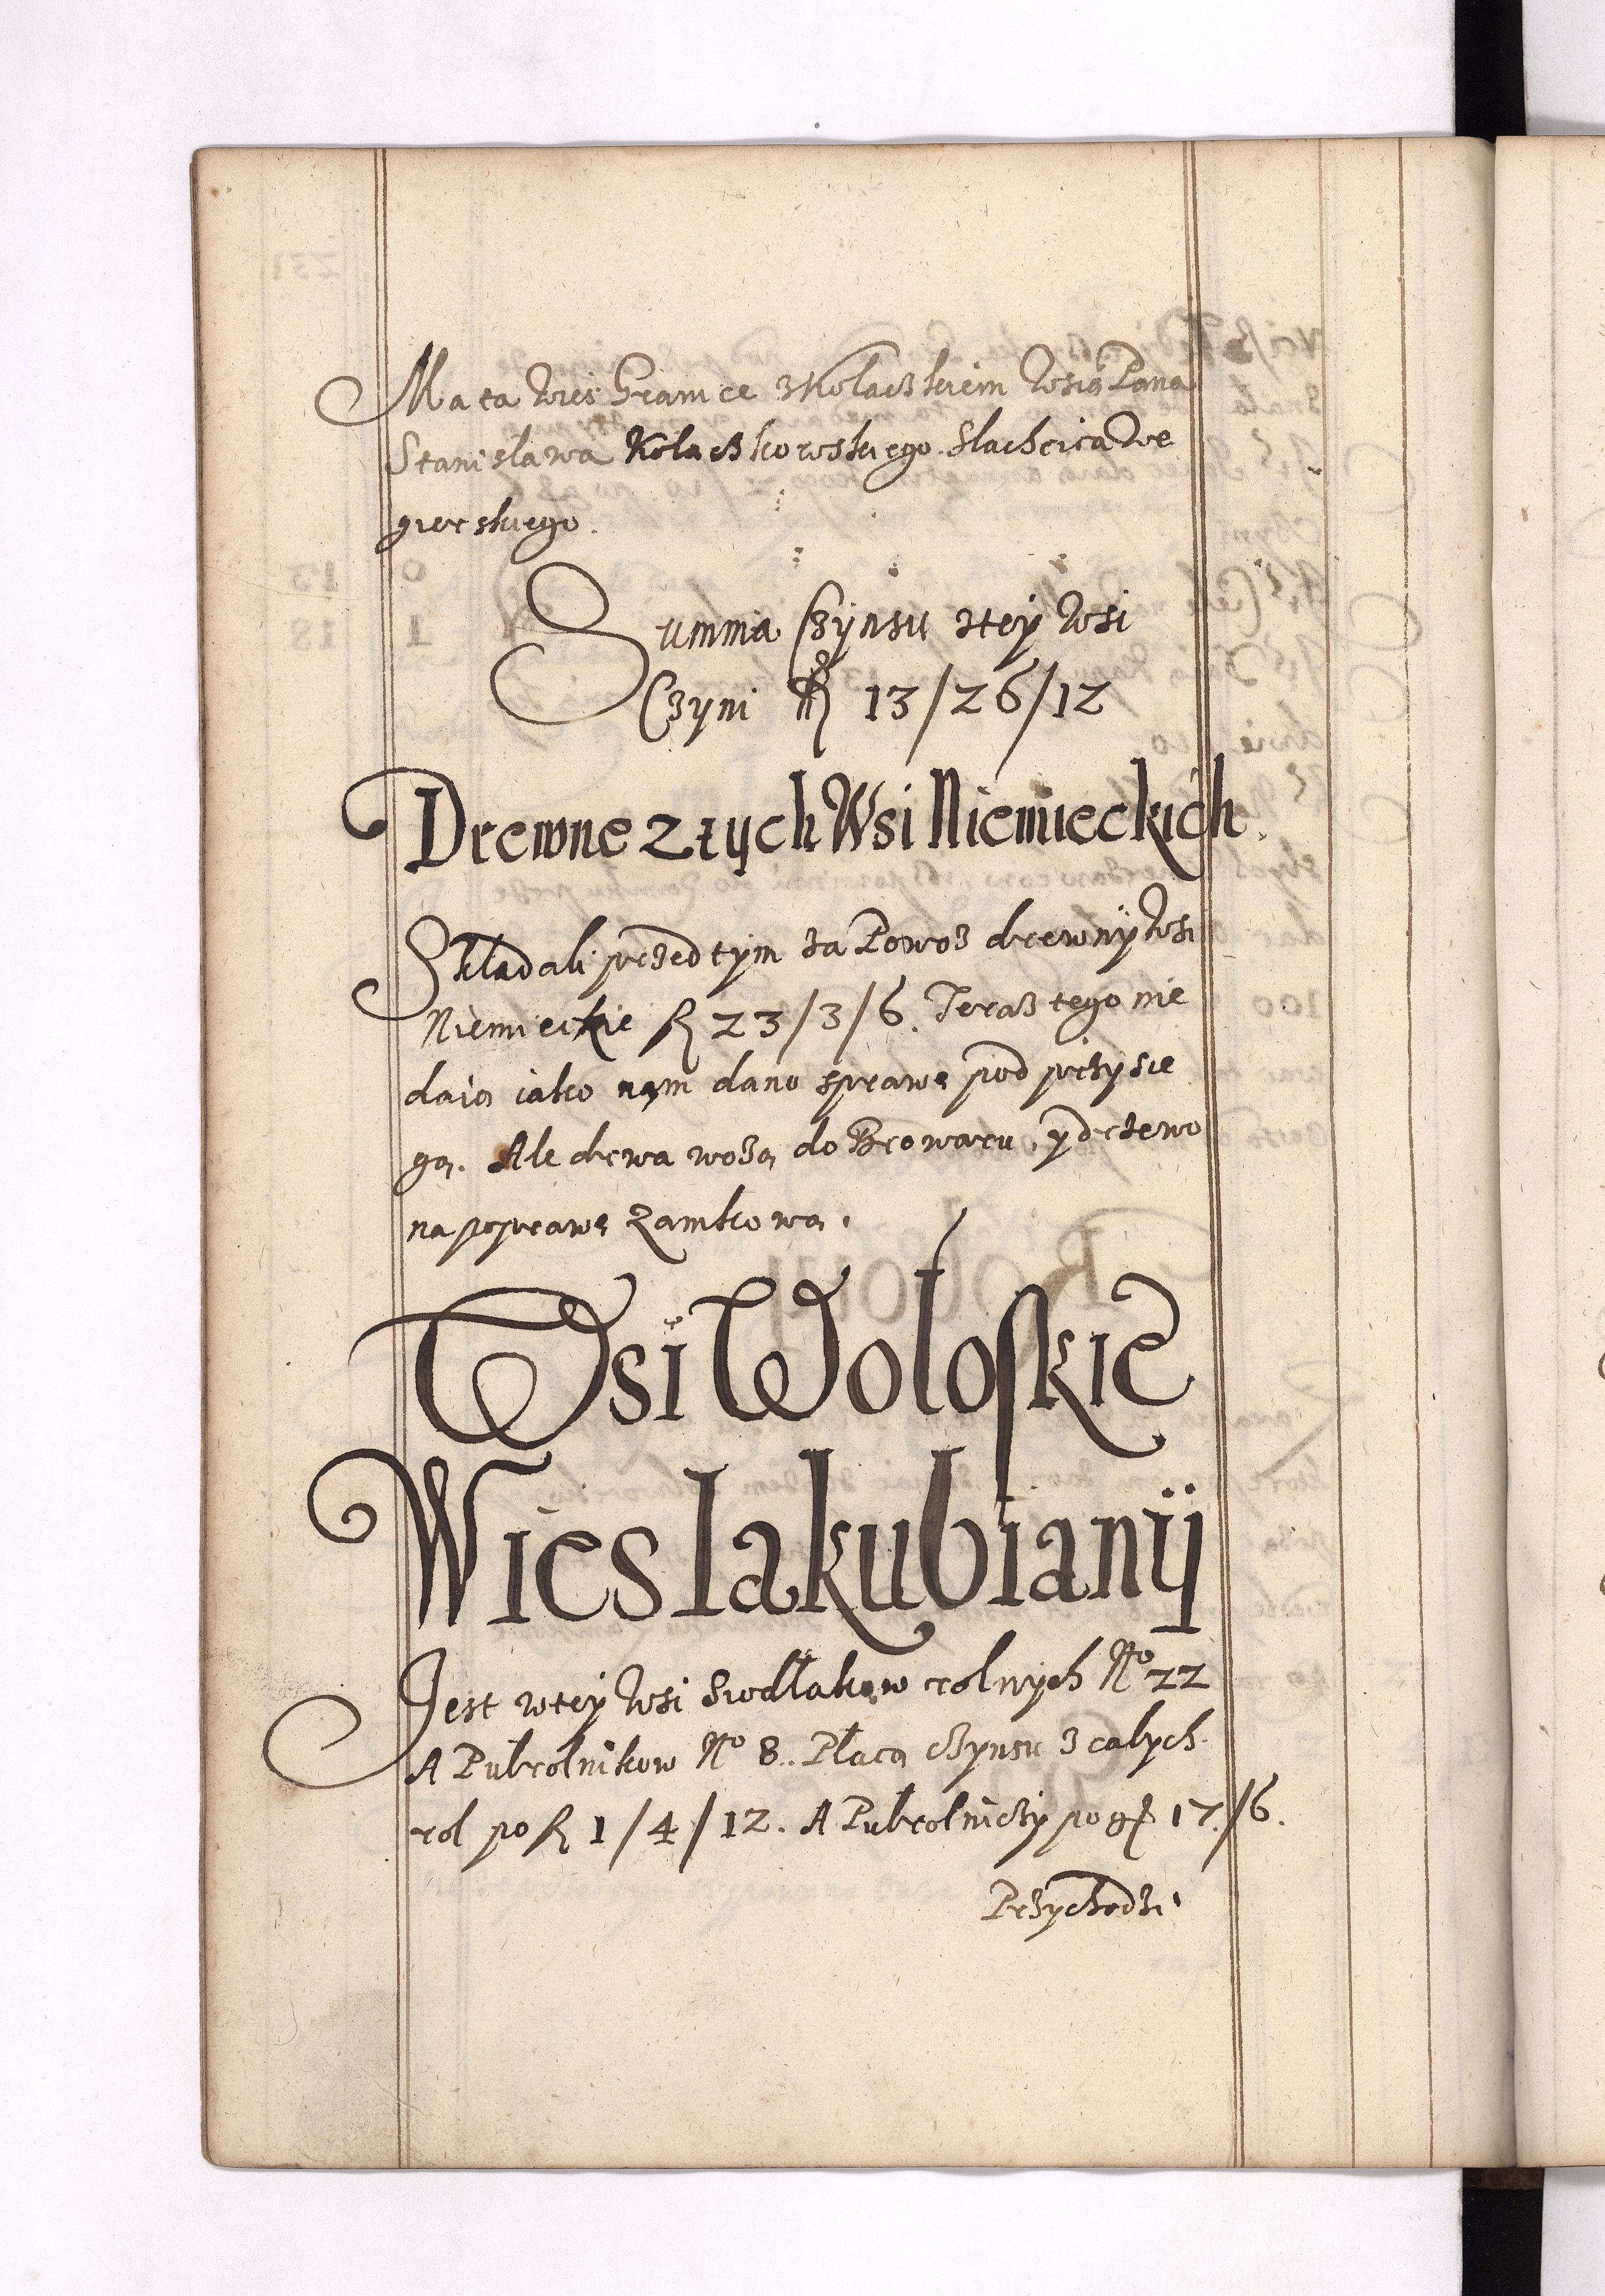 Ma ta wieś Granice z Kolaczkiem wsią Pana
Stanisława Kolaczkowskiego Slachcica We
gierskiego.
Summa Czynsu ztey wsi
Czyni fl 13/26/12
Drewne z tych Wsi Niemieckich.
Skladali przed tym za Powoz drewny wsi
Niemieckie fl 23/3/6. Teraz tego nie
daią iako nąm dano sprawę pod przysie
gą. Ale drwa wożą do Browaru, y drzewo
na poprawę Zamkową.
Wsi Woloskie
Wies Iakubianÿ
Jest wtey wsi Siodlakow rolnych No 22
A Pulrolnikow No 8. Placą czynsu z calych
rol po fl 1/4/12. A Pulrolniczy po gr 17/6.
Przychodzi